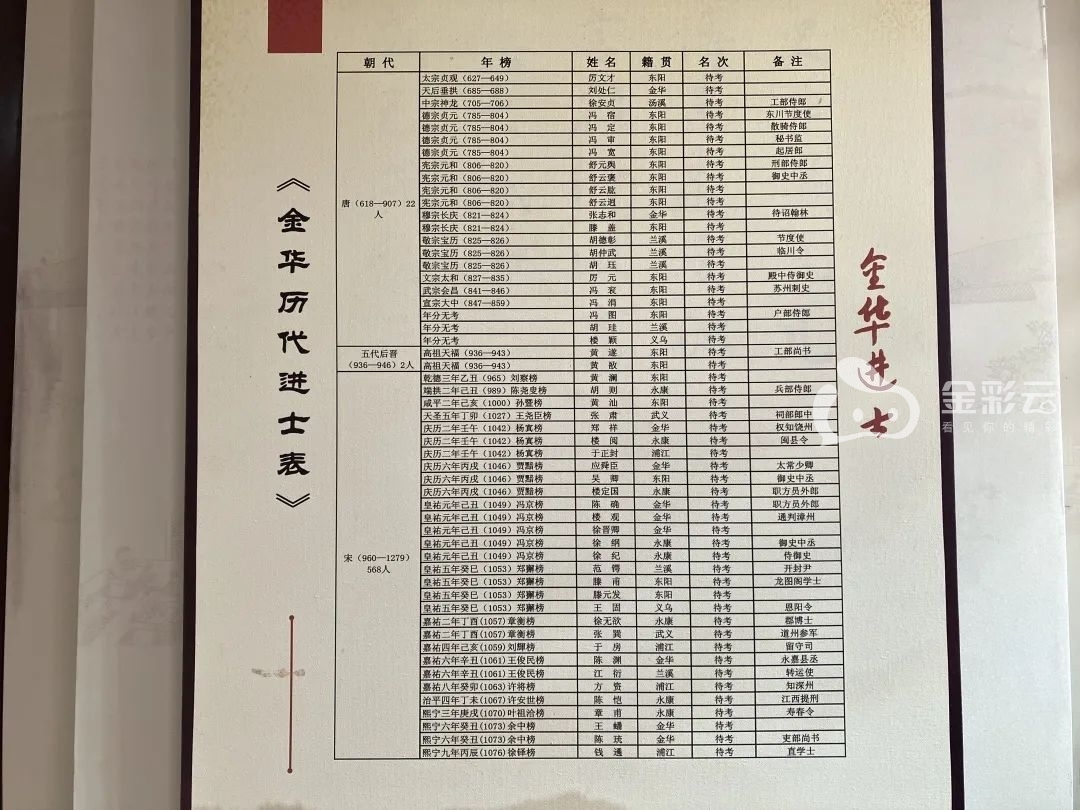 《金华历代进士表》
朝代 年榜 姓名 籍贯 名次 备注
唐（618—907）22人
太宗贞观（627—649） 厉文才 东阳 待考
天后垂拱（685—688） 刘处仁 金华 待考
中宗神龙（705—706） 徐安贞 汤溪 待考 工部侍郎
德宗贞元（785—804） 冯宿 东阳 待考 东川节度使
德宗贞元（785—804） 冯定 东阳 待考 散骑侍郎
德宗贞元（785—804） 冯审 东阳 待考 秘书监
德宗贞元（785—804） 冯宽 东阳 待考 起居郎
宪宗元和（806—820） 舒元舆 东阳 待考 刑部侍郎
宪宗元和（806—820） 舒云褒 东阳 待考 御史中丞
宪宗元和（806—820） 舒云肱 东阳 待考
宪宗元和（806—820） 舒云迥 东阳 待考
穆宗长庆（821—824） 张志和 金华 待考 待诏翰林
穆宗长庆（821—824） 滕盖 东阳 待考
敬宗宝历（825—826） 胡德彰 兰溪 待考 节度使
敬宗宝历（825—826） 胡仲武 兰溪 待考 临川令
敬宗宝历（825—826） 胡珏 兰溪 待考
文宗太和（827—835） 厉元 东阳 待考 殿中侍御史
武宗会昌（841—846） 冯衮 东阳 待考 苏州刺史
宣宗大中（847—859） 冯涓 东阳 待考
年分无考 冯图 东阳 待考 户部侍郎
年分无考 胡珪 兰溪 待考
年分无考 楼颖 义乌 待考
五代后晋（936—946）2人
高祖天福（936—943） 黄遂 东阳 待考 工部尚书
高祖天福（936—943） 黄敔 东阳 待考
宋（960—1279）568人
乾德三年乙丑（965）刘察榜 黄澜 东阳 待考
端拱二年己丑（989）陈尧叟榜 胡则 永康 待考 兵部侍郎
咸平二年己亥（1000）孙暨榜 黄汕 东阳 待考
天圣五年丁卯（1027）王尧臣榜 张肃 武义 待考 祠部郎中
庆历二年壬午（1042）杨寘榜 郑祥 金华 待考 权知饶州
庆历二年壬午（1042）杨寘榜 楼闶 永康 待考 闽县令
庆历二年壬午（1042）杨寘榜 于正封 浦江 待考
庆历六年丙戌（1046）贾黯榜 应舜臣 金华 待考 太常少卿
庆历六年丙戌（1046）贾黯榜 吴卿 东阳 待考 御史中丞
庆历六年丙戌（1046）贾黯榜 楼定国 永康 待考 职方员外郎
皇祐元年己丑（1049）冯京榜 陈确 金华 待考 职方员外郎
皇祐元年己丑（1049）冯京榜 楼观 金华 待考 通判漳州
皇祐元年己丑（1049）冯京榜 徐晋卿 金华 待考
皇祐元年己丑（1049）冯京榜 徐纲 永康 待考 御史中丞
皇祐元年己丑（1049）冯京榜 徐纪 永康 待考 侍御史
皇祐五年癸巳（1053）郑獬榜 范锷 兰溪 待考 开封尹
皇祐五年癸巳（1053）郑獬榜 滕甫 东阳 待考 龙图阁学士
皇祐五年癸巳（1053）郑獬榜 滕元发 东阳 待考
皇祐五年癸巳（1053）郑獬榜 王固 义乌 待考 恩阳令
嘉祐二年丁酉(1057)章衡榜 徐无欲 永康 待考 郡博士
嘉祐二年丁酉(1057)章衡榜 张巽 武义 待考 道州参军
嘉祐四年己亥(1059)刘辉榜 于房 浦江 待考 留守司
嘉祐六年辛丑(1061)王俊民榜 陈渊 金华 待考 永嘉县丞
嘉祐六年辛丑(1061)王俊民榜 江衍 兰溪 待考 转运使
嘉祐八年癸卯(1063)许将榜 方资 浦江 待考 知深州
治平四年丁未(1067)许安世榜 陈恺 永康 待考 江西提刑
熙宁三年庚戌(1070)叶祖洽榜 章甫 永康 待考 寿春令
熙宁六年癸丑(1073)余中榜 王蟠 金华 待考
熙宁六年癸丑(1073)余中榜 陈珫 金华 待考 吏部尚书
熙宁九年丙辰(1076)徐铎榜 钱遹 浦江 待考 直学士
金华进士
金彩云
看见你的精彩